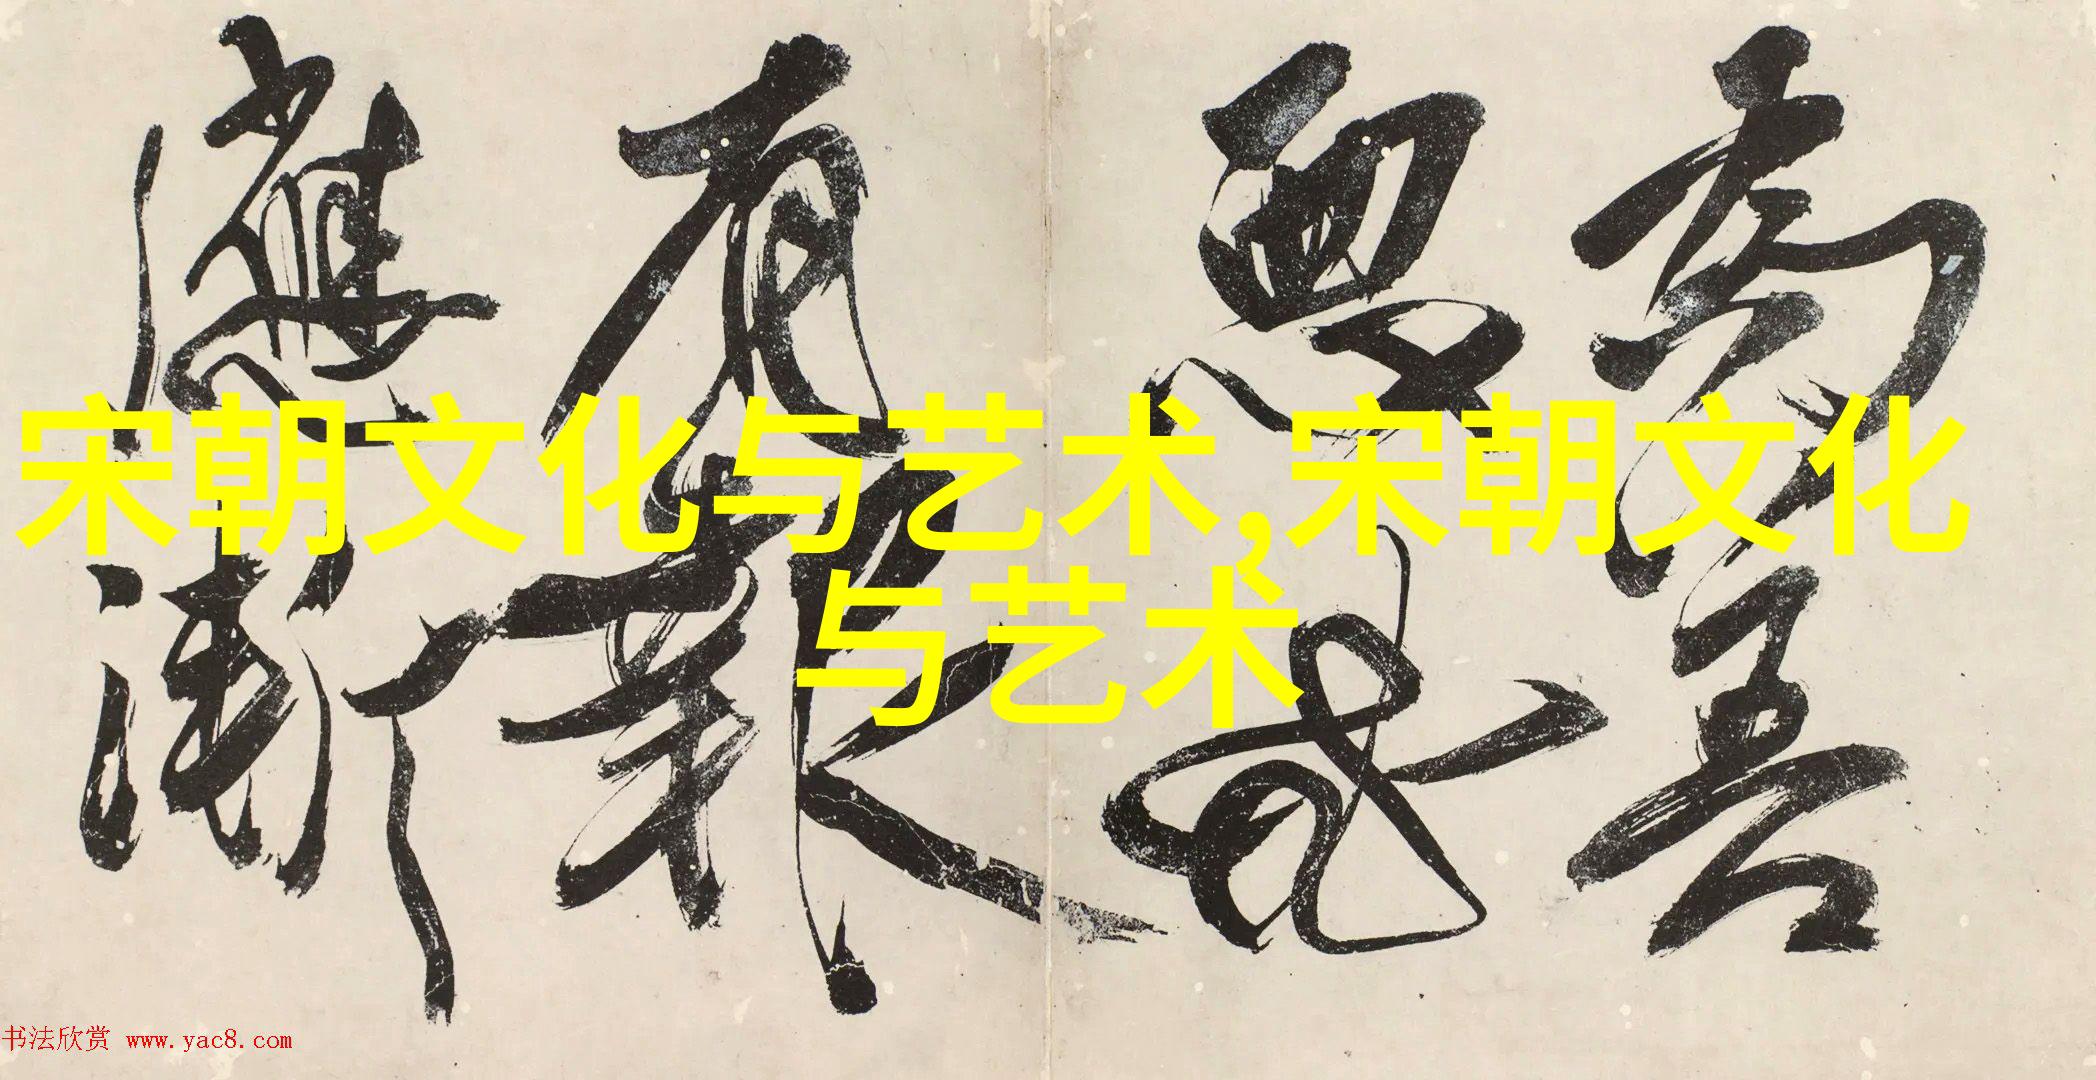 為善
惡
有報
應
宋朝文化与艺术,宋朝文化
与艺术
书法欣赏 www.yac8.com